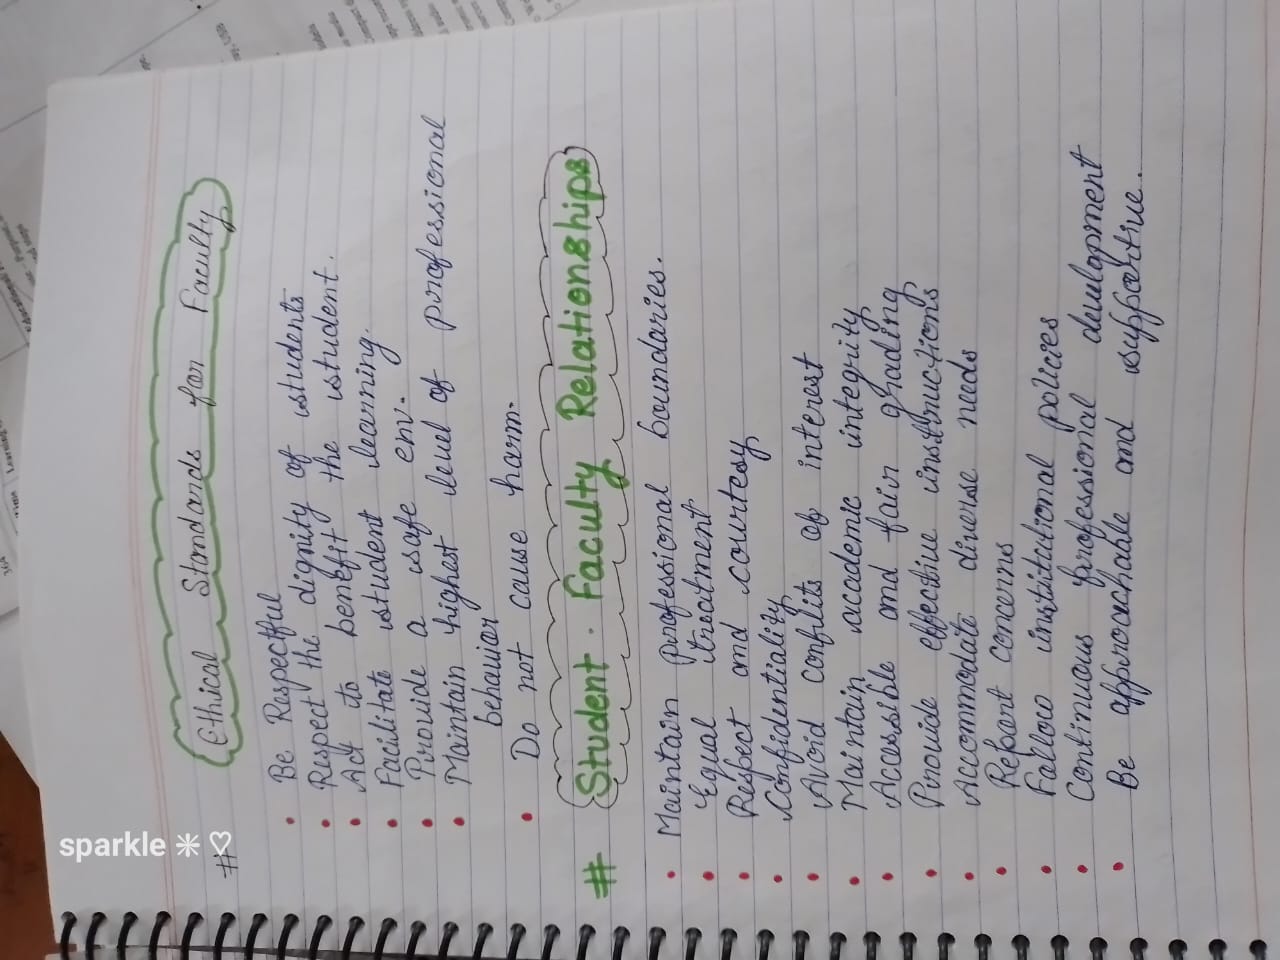 sparkle ✳♡
# Ethical Standards for Faculty
• Be Respectful
• Respect the dignity of students
• Act to benefit the student.
• Facilitate student learning.
• Provide a safe env.
• Maintain highest level of professional
behavior
• Do not cause harm.
# Student. Faculty Relationships
• Maintain professional boundaries.
• Equal treatment
• Respect and courtesy
• Confidentiality
• Avoid conflits of interest
• Maintain academic integrity
• Accessible and fair grading
• Provide effective instructions
• Accommodate diverse needs
• Report concerns
• Follow institutional policies
• Continuous professional development
• Be approachable and supportive.
364
Time
Learning
Educational